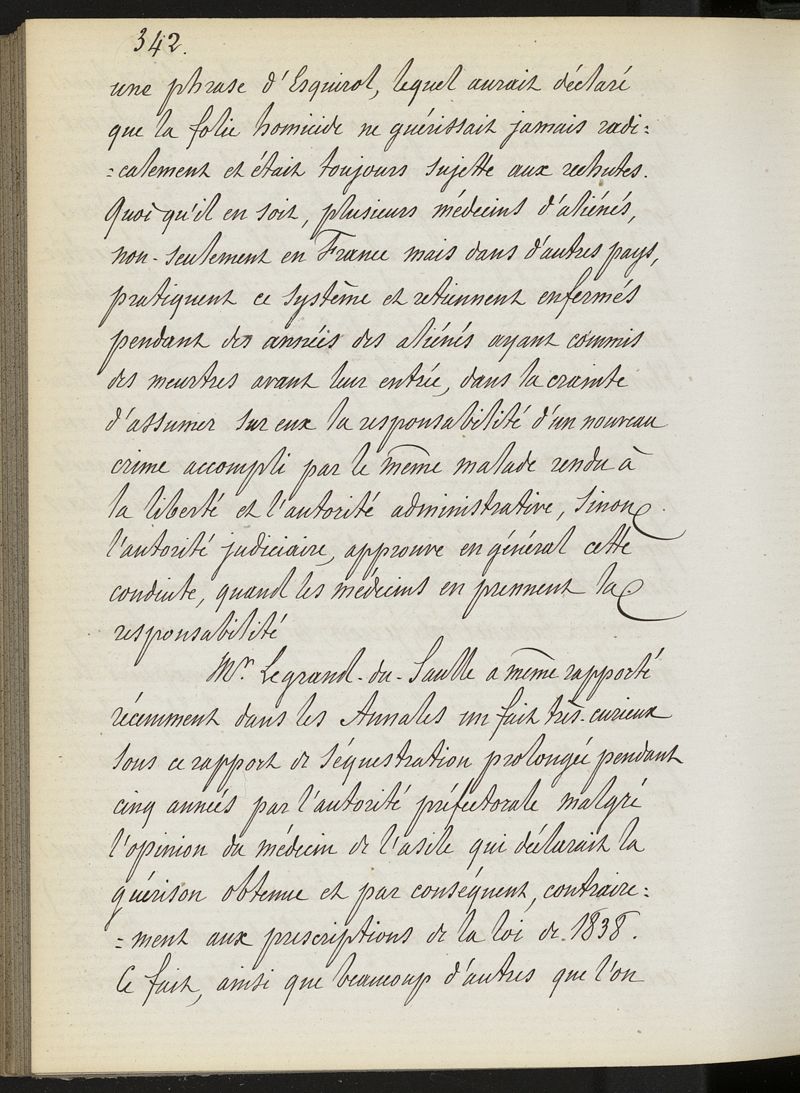 342.
une phrase d'Esquirol, lequel aurait déclaré
que la folie homicide ne guérissait jamais radi:
=calement et était toujours sujette aux rechutes.
Quoi qu'il en soit, plusieurs médecins d'aliénés,
non-seulement en France mais dans d'autres pays,
pratiquent ce système et retiennent enfermés
pendant des années des aliénés ayant commis
des meurtres avant leur entrée, dans la crainte
d'assumer sur eux la responsabilité d'un nouveau
crime accompli par le même malade rendu à
la liberté et l'autorité administrative, sinon
l'autorité judiciaire, approuve en général cette
conduite, quand les médecins en prennent la
responsabilité
Mr. Legrand-du-Saulle a même rapporté
récemment dans les Annales un fait très-curieux
sous ce rapport de séquestration prolongée pendant
cinq années par l'autorité préfectorale malgré
l'opinion du médecin de l'asile qui déclarait la
guérison obtenue et par conséquent, contraire:
=ment aux prescriptions de la loi de 1838.
Ce fait, ainsi que beaucoup d'autres que l'on